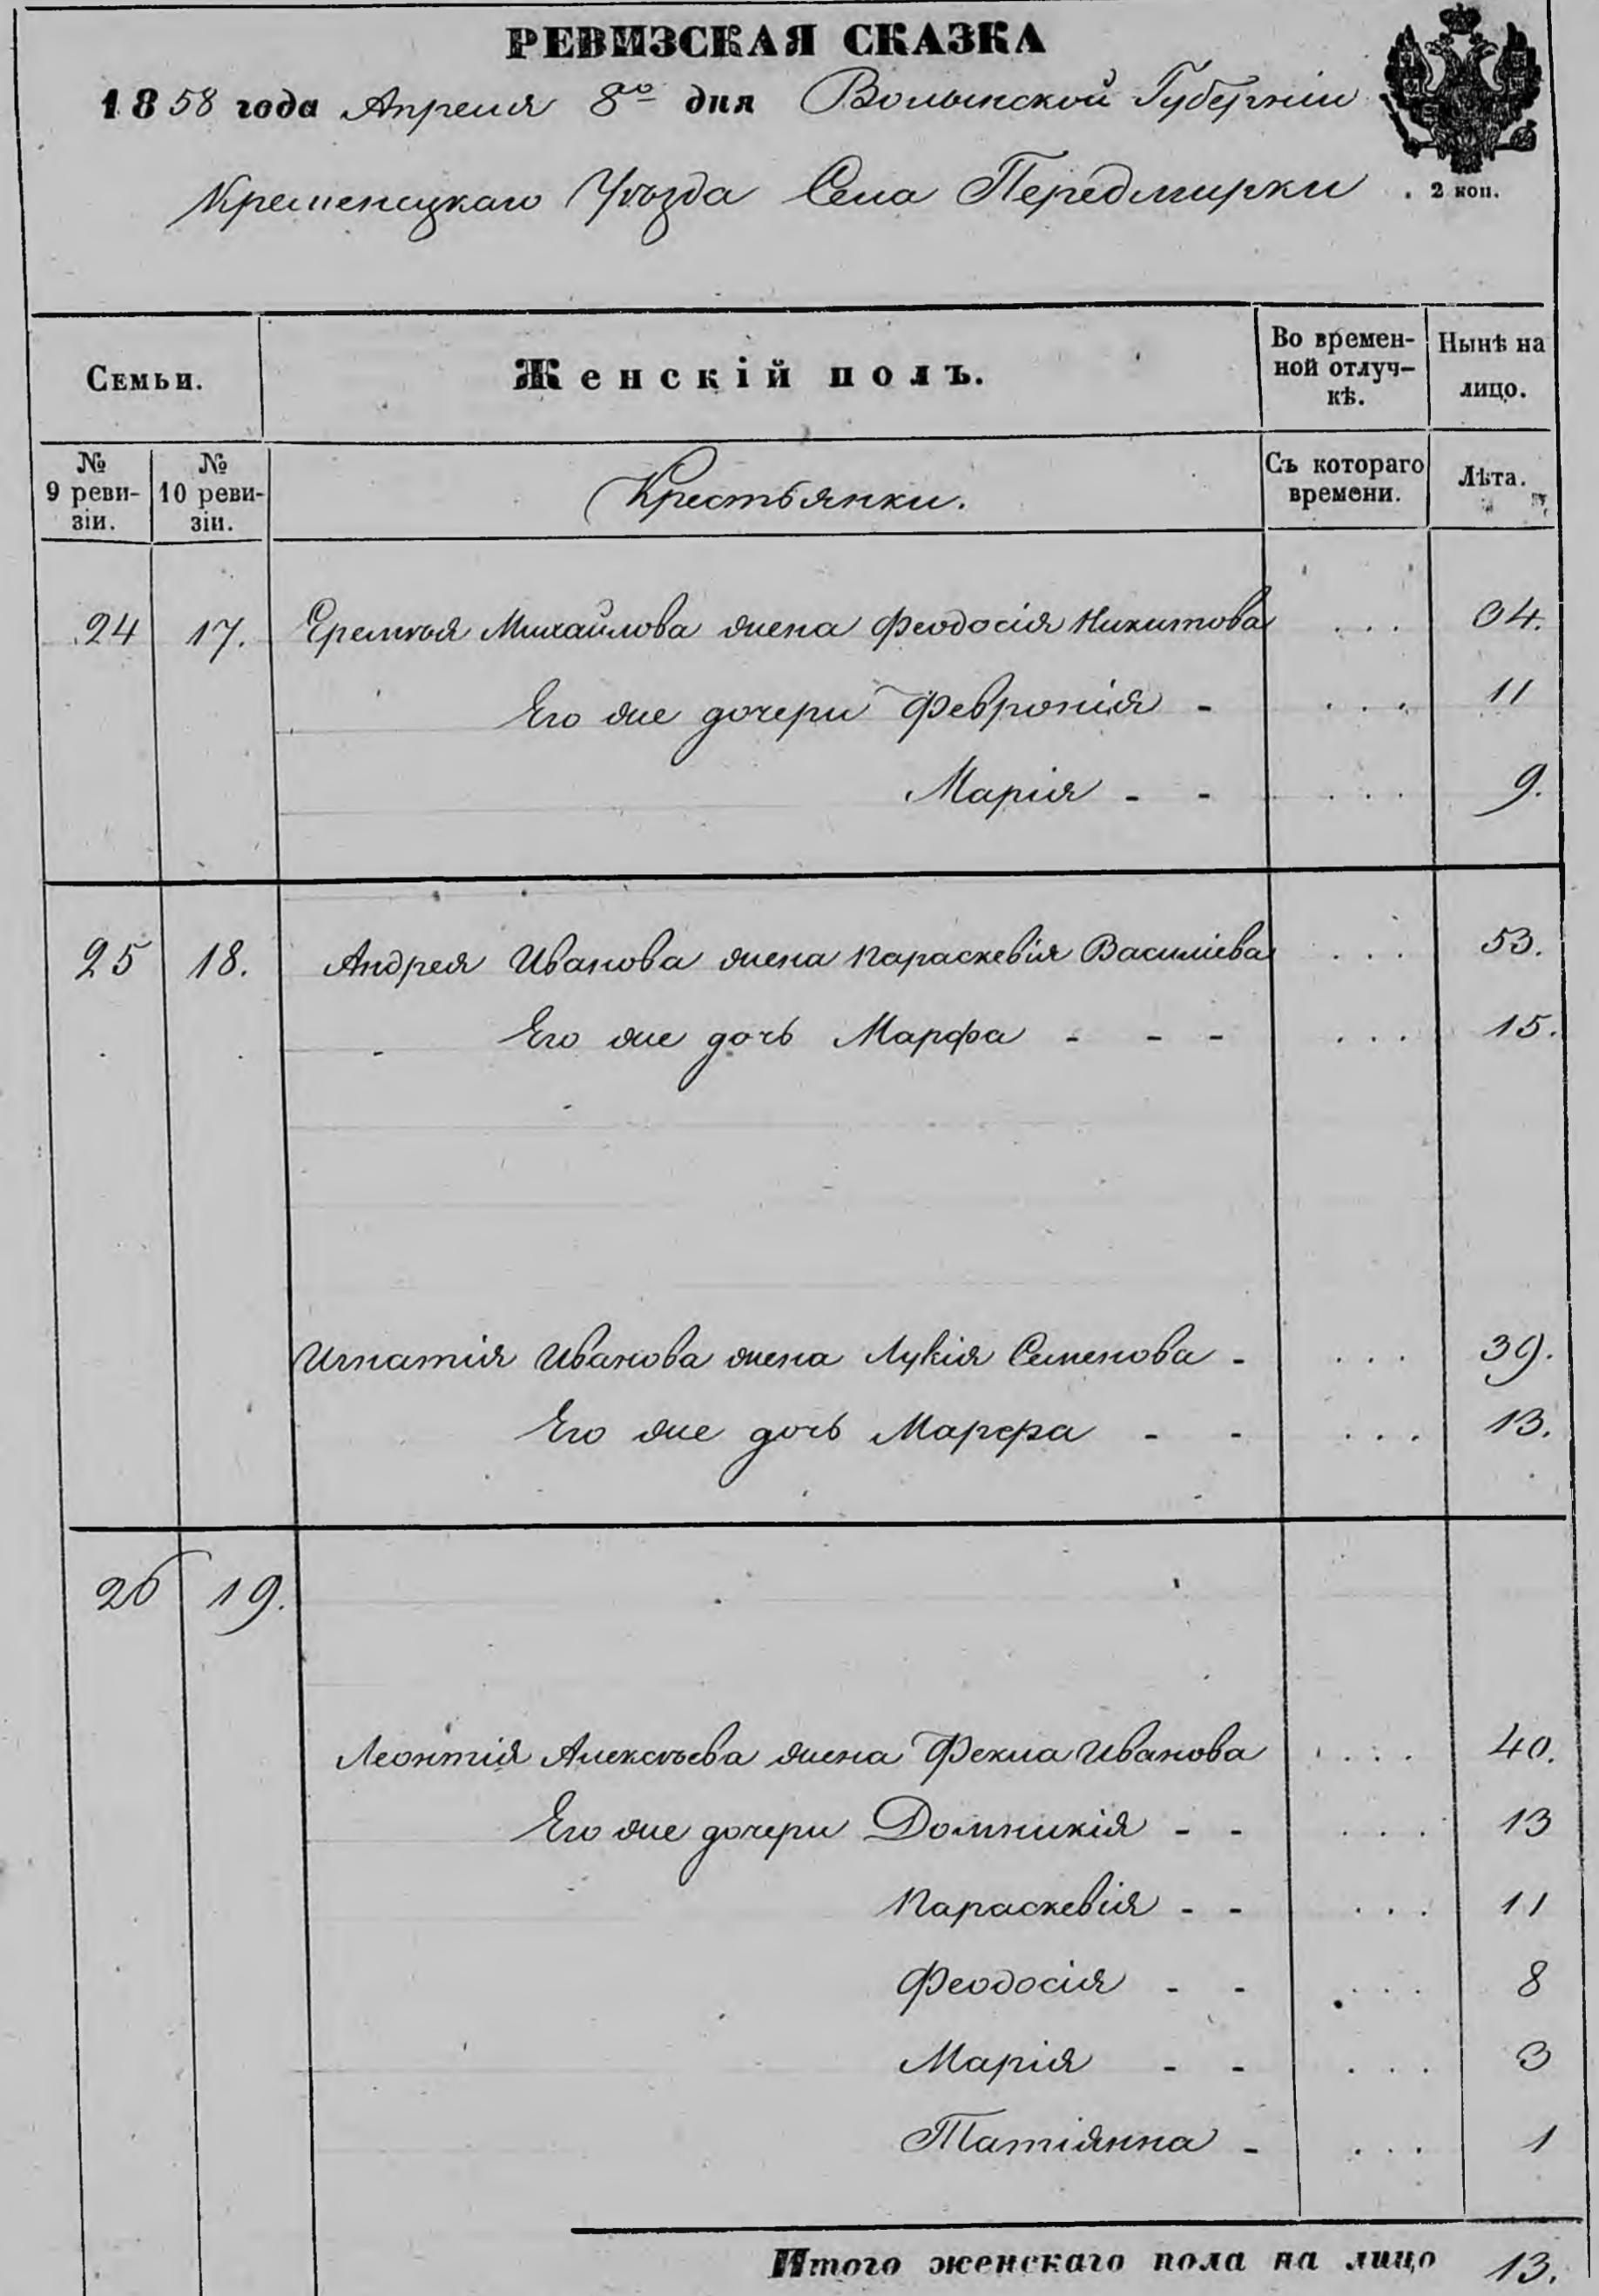 РЕВИЗСКАЯ СКАЗКА
1858 года Апреля 8го дня Волынской Губерніи
Кременецкаго Уѣзда Села Передмирки
2 коп.
Семьи.
Женскій полъ.
Во времен-
ной отлуч-
кѣ.
Нынѣ на
лицо.
№
9 реви-
зіи.
№
10 реви-
зіи.
Крестьянки.
Съ котораго
времени.
Лѣта.
24 17. Еремѣя Михайлова жена Феодосія Никитова . . . 34.
Его же дочери Февронія - . . . 11
Марія - - . . . 9.
25 18. Андрея Иванова жена Параскевія Василіева . . . 53.
Его же дочь Марфа - - - . . . 15.
Игнатія Иванова жена Лукія Семенова - . . . 39.
Его же дочь Марфа - - . . . 13.
26 19.
Леонтія Алексѣева жена Фекла Иванова . . . 40.
Его же дочери Домникія - - . . . 13
Параскевія - - . . . 11
Феодосія - - . . . 8
Марія - - . . . 3
Татіянна - . . . 1
Итого женскаго пола на лицо 13.